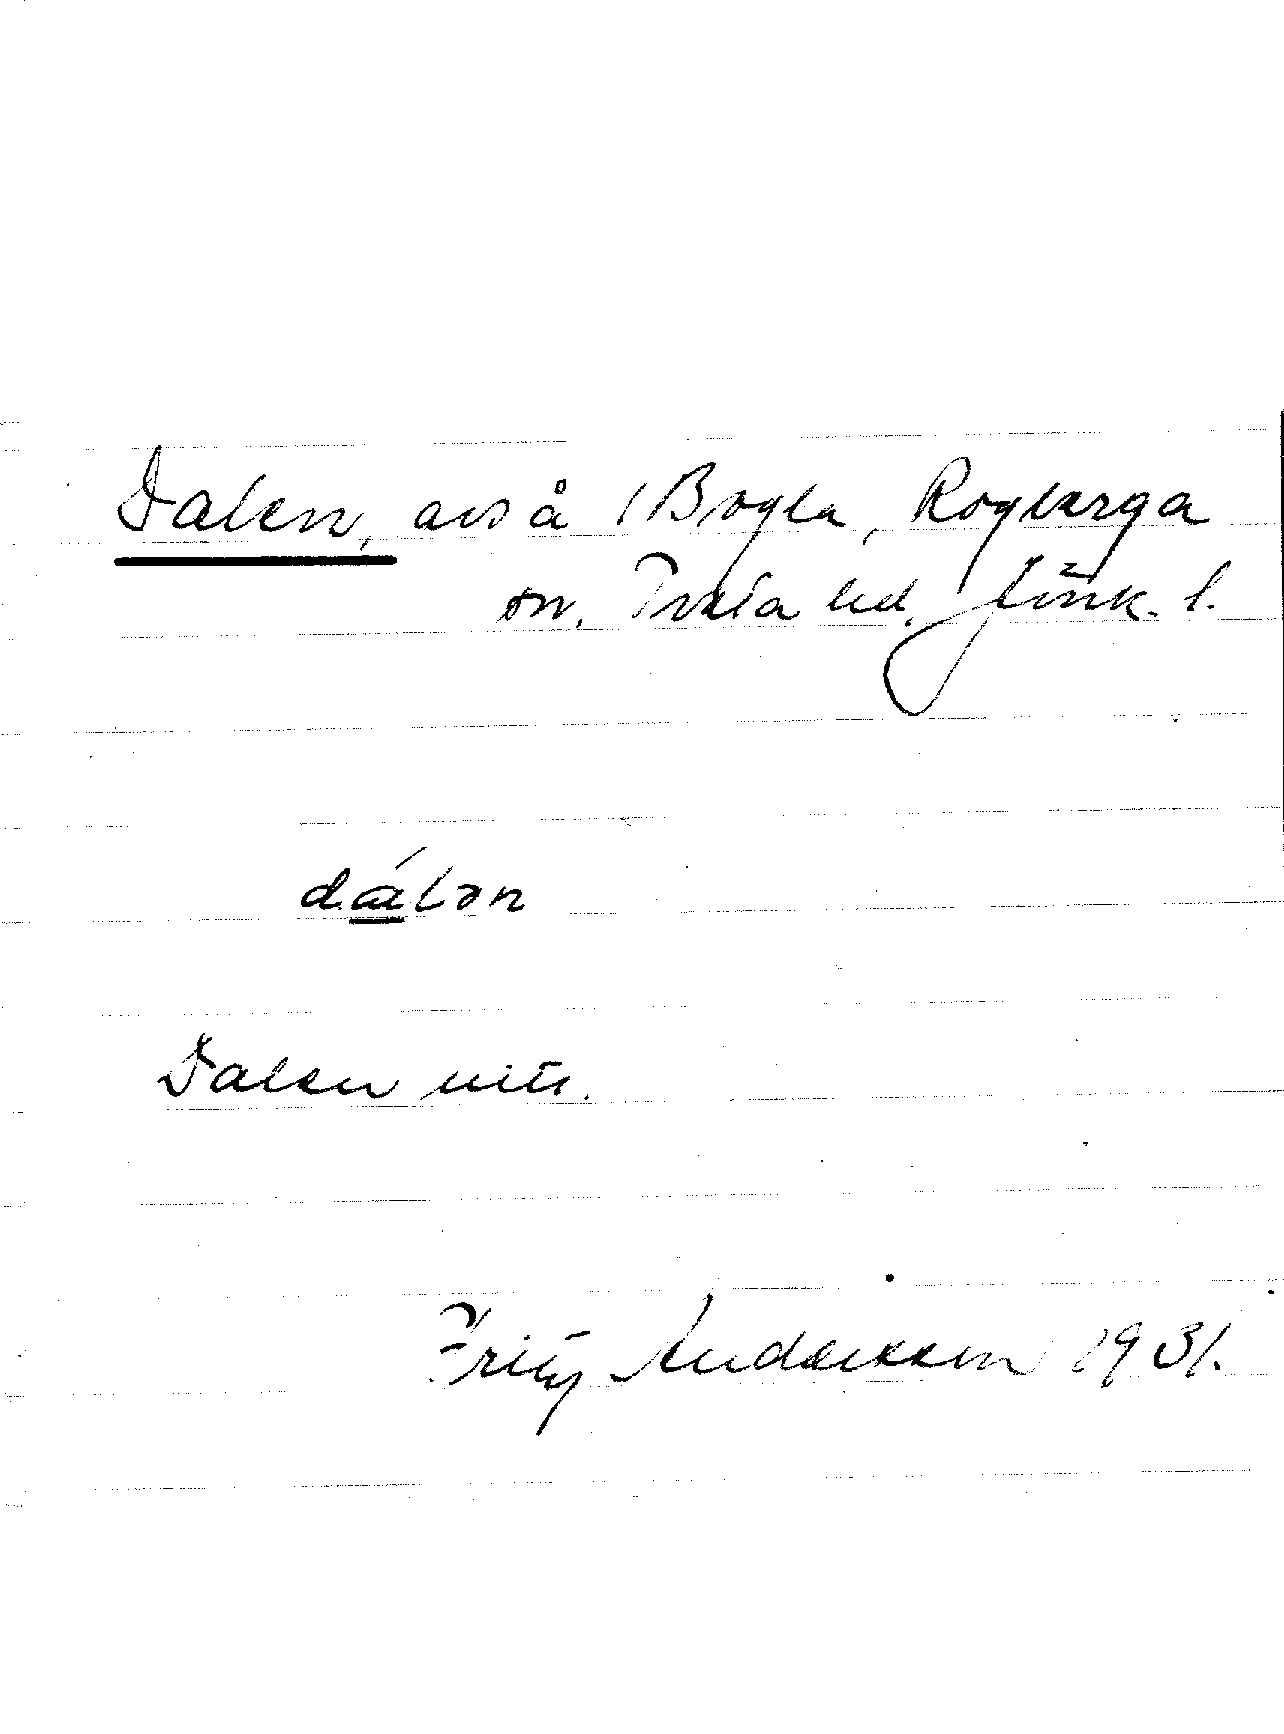 Dalen, avs å /Bogla, Rogberga
sn. Tveta hd. Jönk. l.
dálən
Dalen
Fritz Andersson 1931.